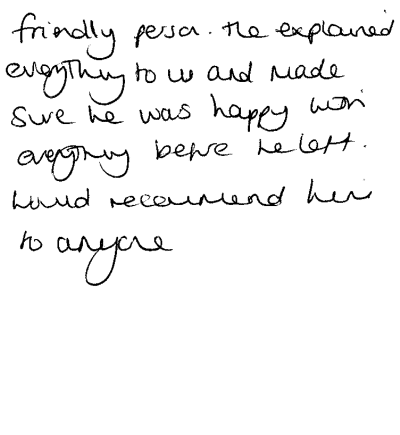 friendly person. He explained
everything to us and made
sure he was happy with
everything before he left.
Would recommend him
to anyone